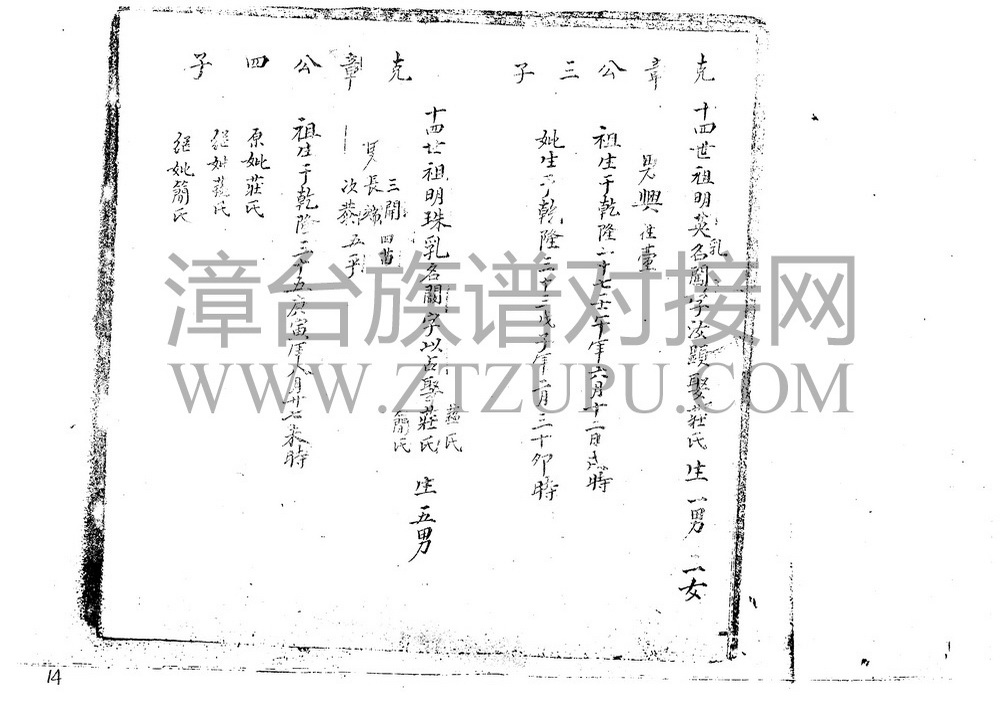 克章公三子
十四世祖明英乳名闖字汝顕娶莊氏 生一男 一女
男興 住臺
祖生于乾隆二十七壬午年六月十二日戌時
妣生于乾隆三十三戊子年二月三十卯時
克章公四子
十四世祖明珠乳名闗字以占娶莊氏 簡氏 生五男
三開 四苗
男長 次恭 五乎
祖生于乾隆三十五庚寅年八月廿七未時
原妣莊氏
继妣氏
继妣簡氏
漳台族谱对接网
WWW.ZTZUPU.COM
14